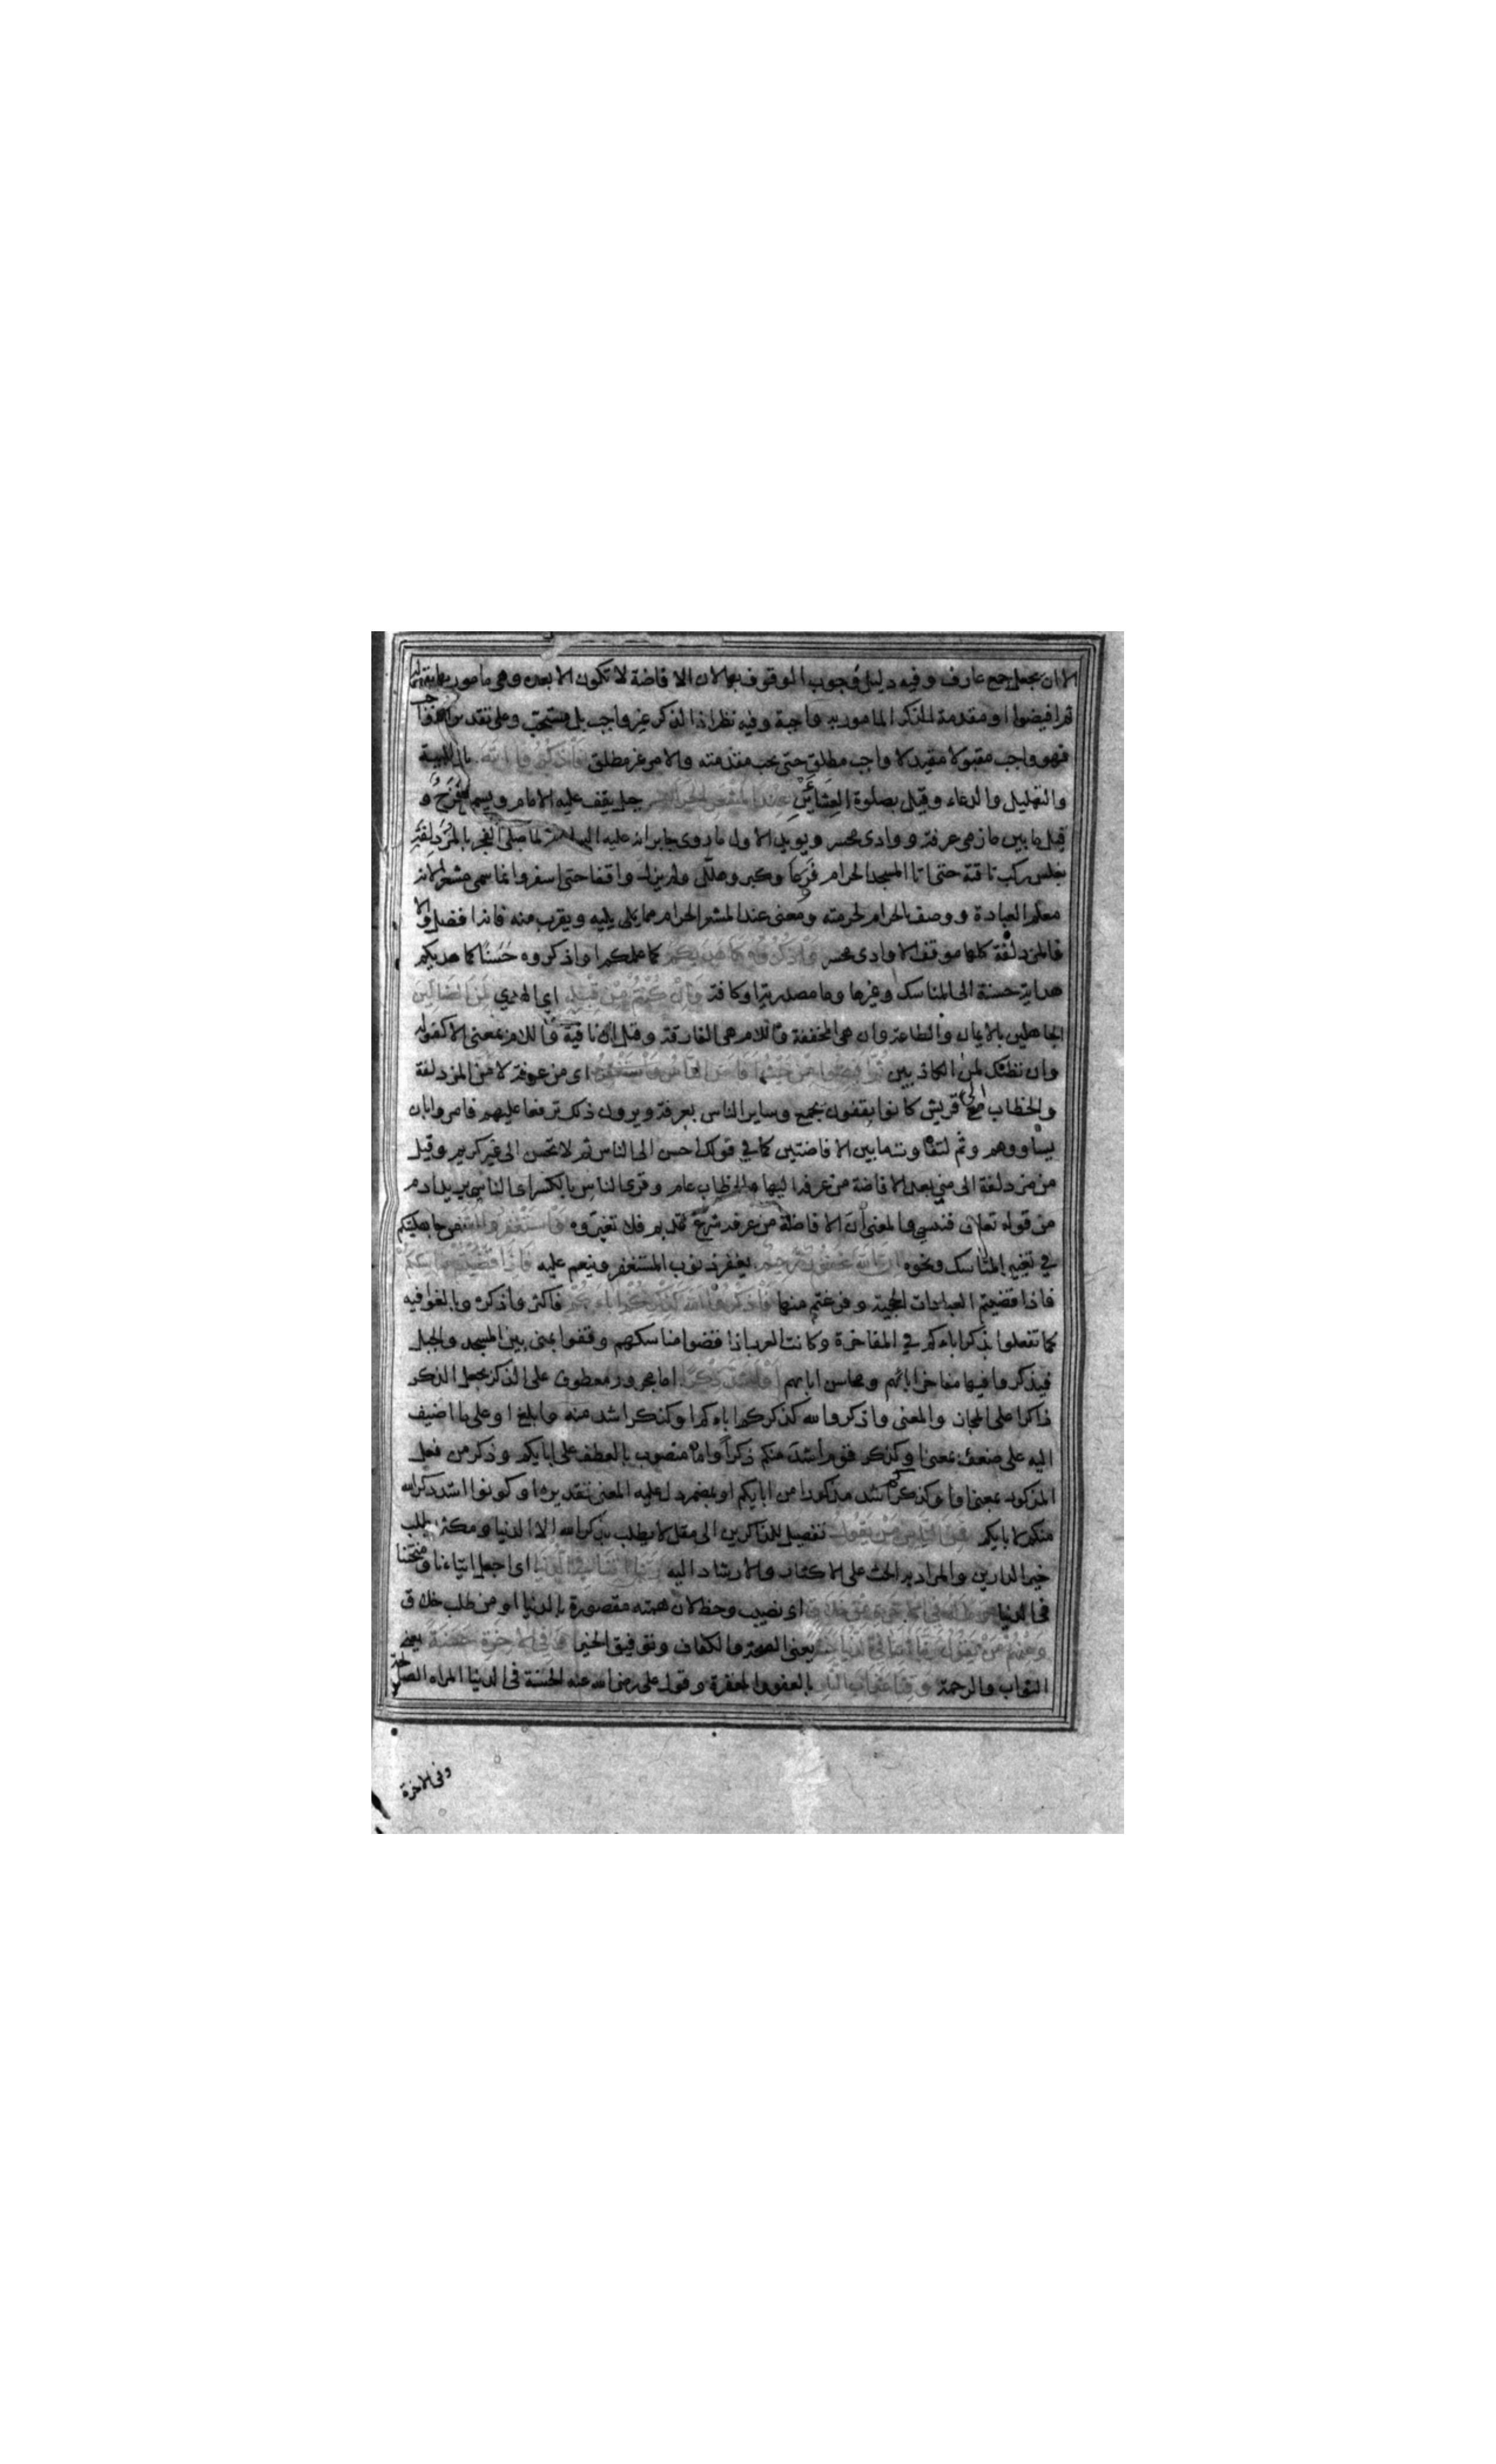 الا ان يجعل جمع عارف وفيه دليل وجوب الوقوف بها لان الافاضة لا تكون الا بعده وهي مامور بها بقوله
ثم افيضوا او مقدمة للذكر المامور به واجبة وفيه نظر اذ الذكر غير واجب بل مستحب وعلى تقدير
فهو واجب مقيد لا واجب مطلق حتى يجب مقدمته والامر غير مطلق فاذكروا الله بالتلبية
والتهليل والدعاء وقيل بصلوة العشائين عند المشعر الحرام جبل يقف عليه الامام ويسمى قزح و
قيل ما بين مازمي عرفة ووادي محسر ويويد الاول ما روى جابر انه عليه السلام لما صلى الفجر بالمزدلفة
بغلس ركب ناقته حتى اتا المسجد الحرام فدعا وكبر وهلل ولم يزل واقفا حتى اسفر وانما سمي مشعرا لانه
معلم العبادة ووصف بالحرام لحرمته ومعنى عند المشعر الحرام مما يلي يليه ويقرب منه فانه افضل والا
فالمزدلفة كلها موقف الا وادي محسر واذكروه كما هديكم كما علمكم او اذكروه حسنا كما هديكم
هداية حسنة الى المناسك وغيرها وما مصدرية او كافة وان كنتم من قبله اي الهدي لمن الضالين
الجاهلين بالايمان والطاعة وان هي المخففة واللام هي الفارقة وقيل ان نافية واللام بمعنى الا كقوله
وان نظنك لمن الكاذبين ثم افيضوا من حيث افاض الناس واستغفروا اي من عرفة لا من المزدلفة
والخطاب مع قريش كانوا يقفون بجمع وساير الناس بعرفة ويرون ذلك ترفعا عليهم فامروا بان
يساووهم وثم لتفاوت ما بين الافاضتين كما في قولك احسن الى الناس ثم لا تحسن الى غير كريم وقيل
من مزدلفة الى منى بعد الافاضة من عرفة اليها والخطاب عام وقرئ الناس بالكسر اي الناسي يريد ادم
من قوله تعالى فنسي والمعنى ان الافاضة من عرفة شرع قديم فلا تغيروه واستغفروا الله من جاهليتكم
في تغيير المناسك ونحوه ان الله غفور رحيم يغفر ذنوب المستغفر وينعم عليه فاذا قضيتم مناسككم
فاذا قضيتم العبادات الحجية وفرغتم منها فاذكروا الله كذكركم اباءكم فاكثروا ذكره وبالغوا فيه
كما تفعلوا بذكر اباءكم في المفاخرة وكانت العرب اذا قضوا مناسكهم وقفوا بمنى بين المسجد والجبل
فيذكروا فيها مفاخر ابائهم ومحاسن ايامهم او اشد ذكرا اما مجرور معطوف على الذكر بجعل الذكر
ذاكرا على المجاز والمعنى واذكروا الله كذكركم اباءكم او كذكر اشد منه وابلغ او على ما اضيف
اليه على ضعف بمعنى او كذكر قوم اشد منكم ذكرا واما منصوب بالعطف على ابايكم وذكر من فعل
المذكور بمعنى او كذكركم اشد مذكورا من ابايكم او بمضمر دل عليه المعنى تقديره او كونوا اشد ذكرا لله
منكم لابايكم فمن الناس من يقول تفصيل للذاكرين الى مقل لا يطلب بذكر الله الا الدنيا ومكثر يطلب
خير الدارين والمراد به الحث على الاكثار والارشاد اليه ربنا اتنا في الدنيا اي اجعل ايتاءنا ومنحتنا
في الدنيا وما له في الاخرة من خلاق اي نصيب وحظ لان همته مقصورة بالدنيا او من طلب خلاق
ومنهم من يقول ربنا اتنا في الدنيا حسنة يعني الصحة والكفاف وتوفيق الخير وفي الاخرة حسنة يعني
الثواب والرحمة وقنا عذاب النار بالعفو والمغفرة وقول علي رضي الله عنه الحسنة في الدنيا المراة الصالحة
وفي الاخرة